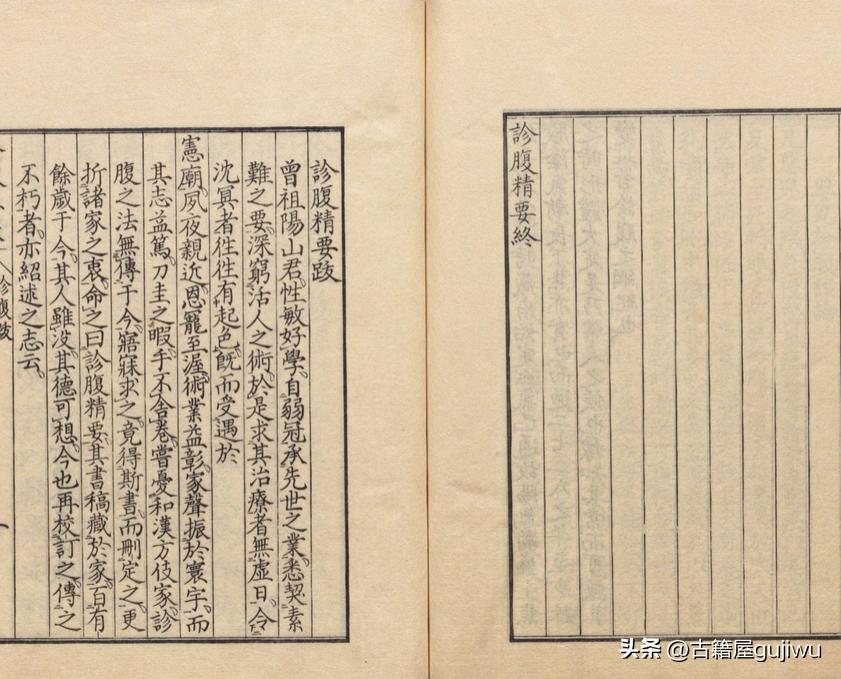 診腹精要終
診腹精要跋
曾祖陽山君性敏好學自弱冠承先世之業悉契素
難之要深窮活人之術於是求其治療者無虛日令
沈冥者徃徃有起色旣而受遇於
憲廟夙夜親近恩寵至渥術業益彰家聲振於寰宇而
其志益篤刀圭之暇手不舍卷嘗憂和漢方伎家診
腹之法無傳于今寤寐求之竟得斯書而刪定之更
折諸家之衷命之曰診腹精要其書稿藏於家百有
餘歲于今其人雖没其德可想今也再校訂之傳之
不朽者亦紹述之志云
頭条 @古籍屋gujiwu